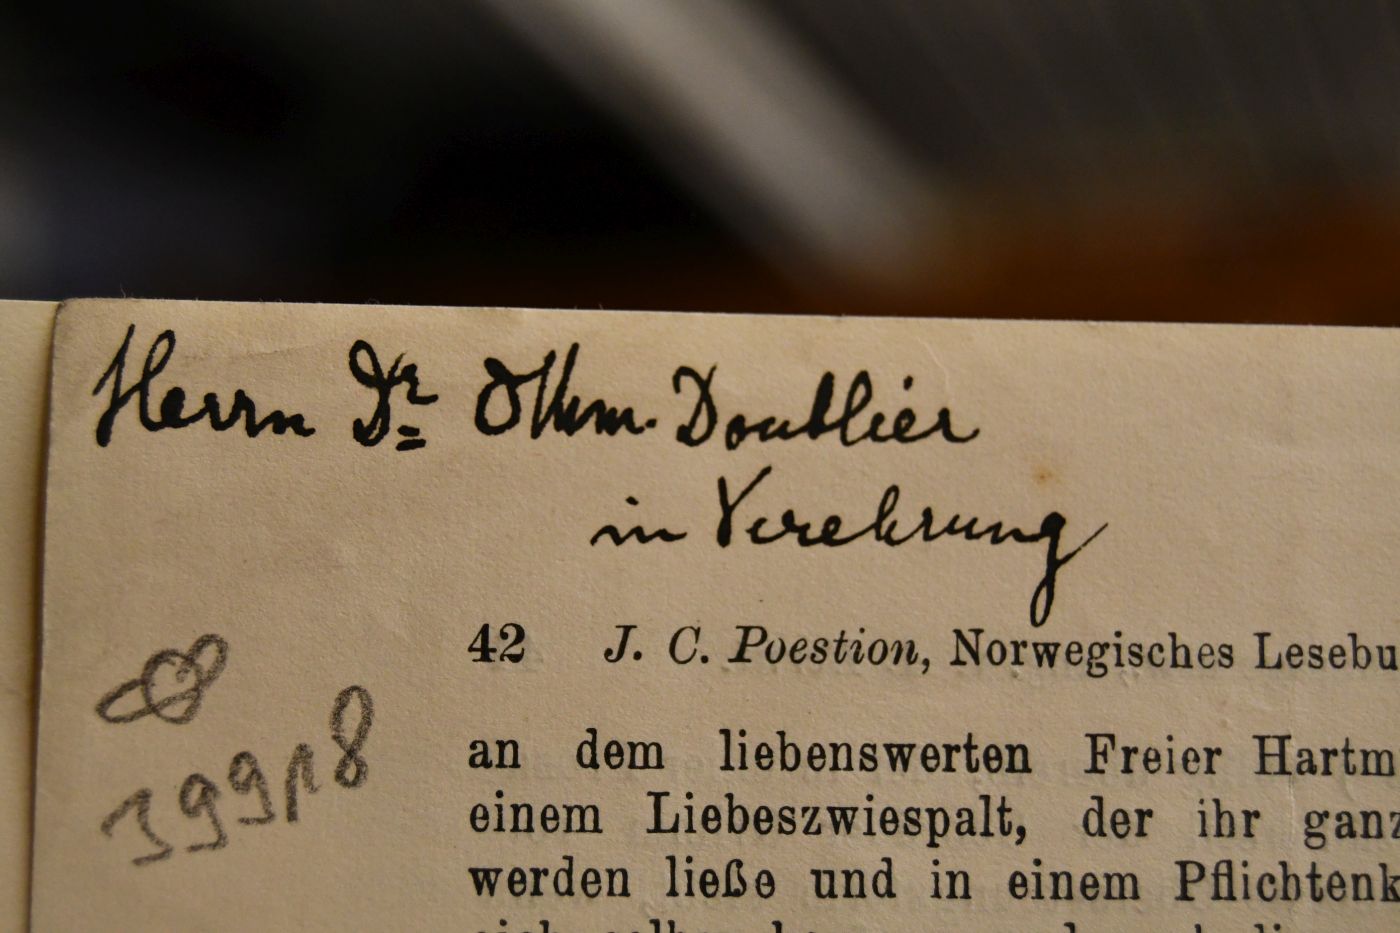 Herrn Dr. Othm. Doublier
in Verehrung
42 J. C. Poestion, Norwegisches Lesebu
39918
an dem liebenswerten Freier Hartm
einem Liebeszwiespalt, der ihr ganz
werden ließe und in einem Pflichtenk